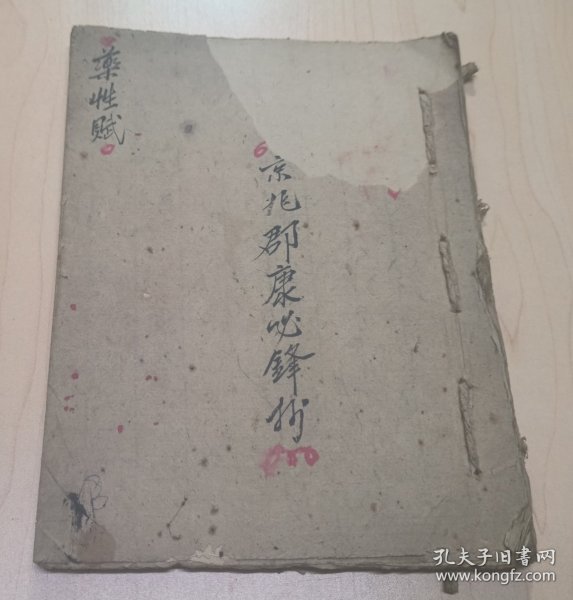 藥性賦
京兆郡康必鋒抄
孔夫子旧书网
www.kongfz.com